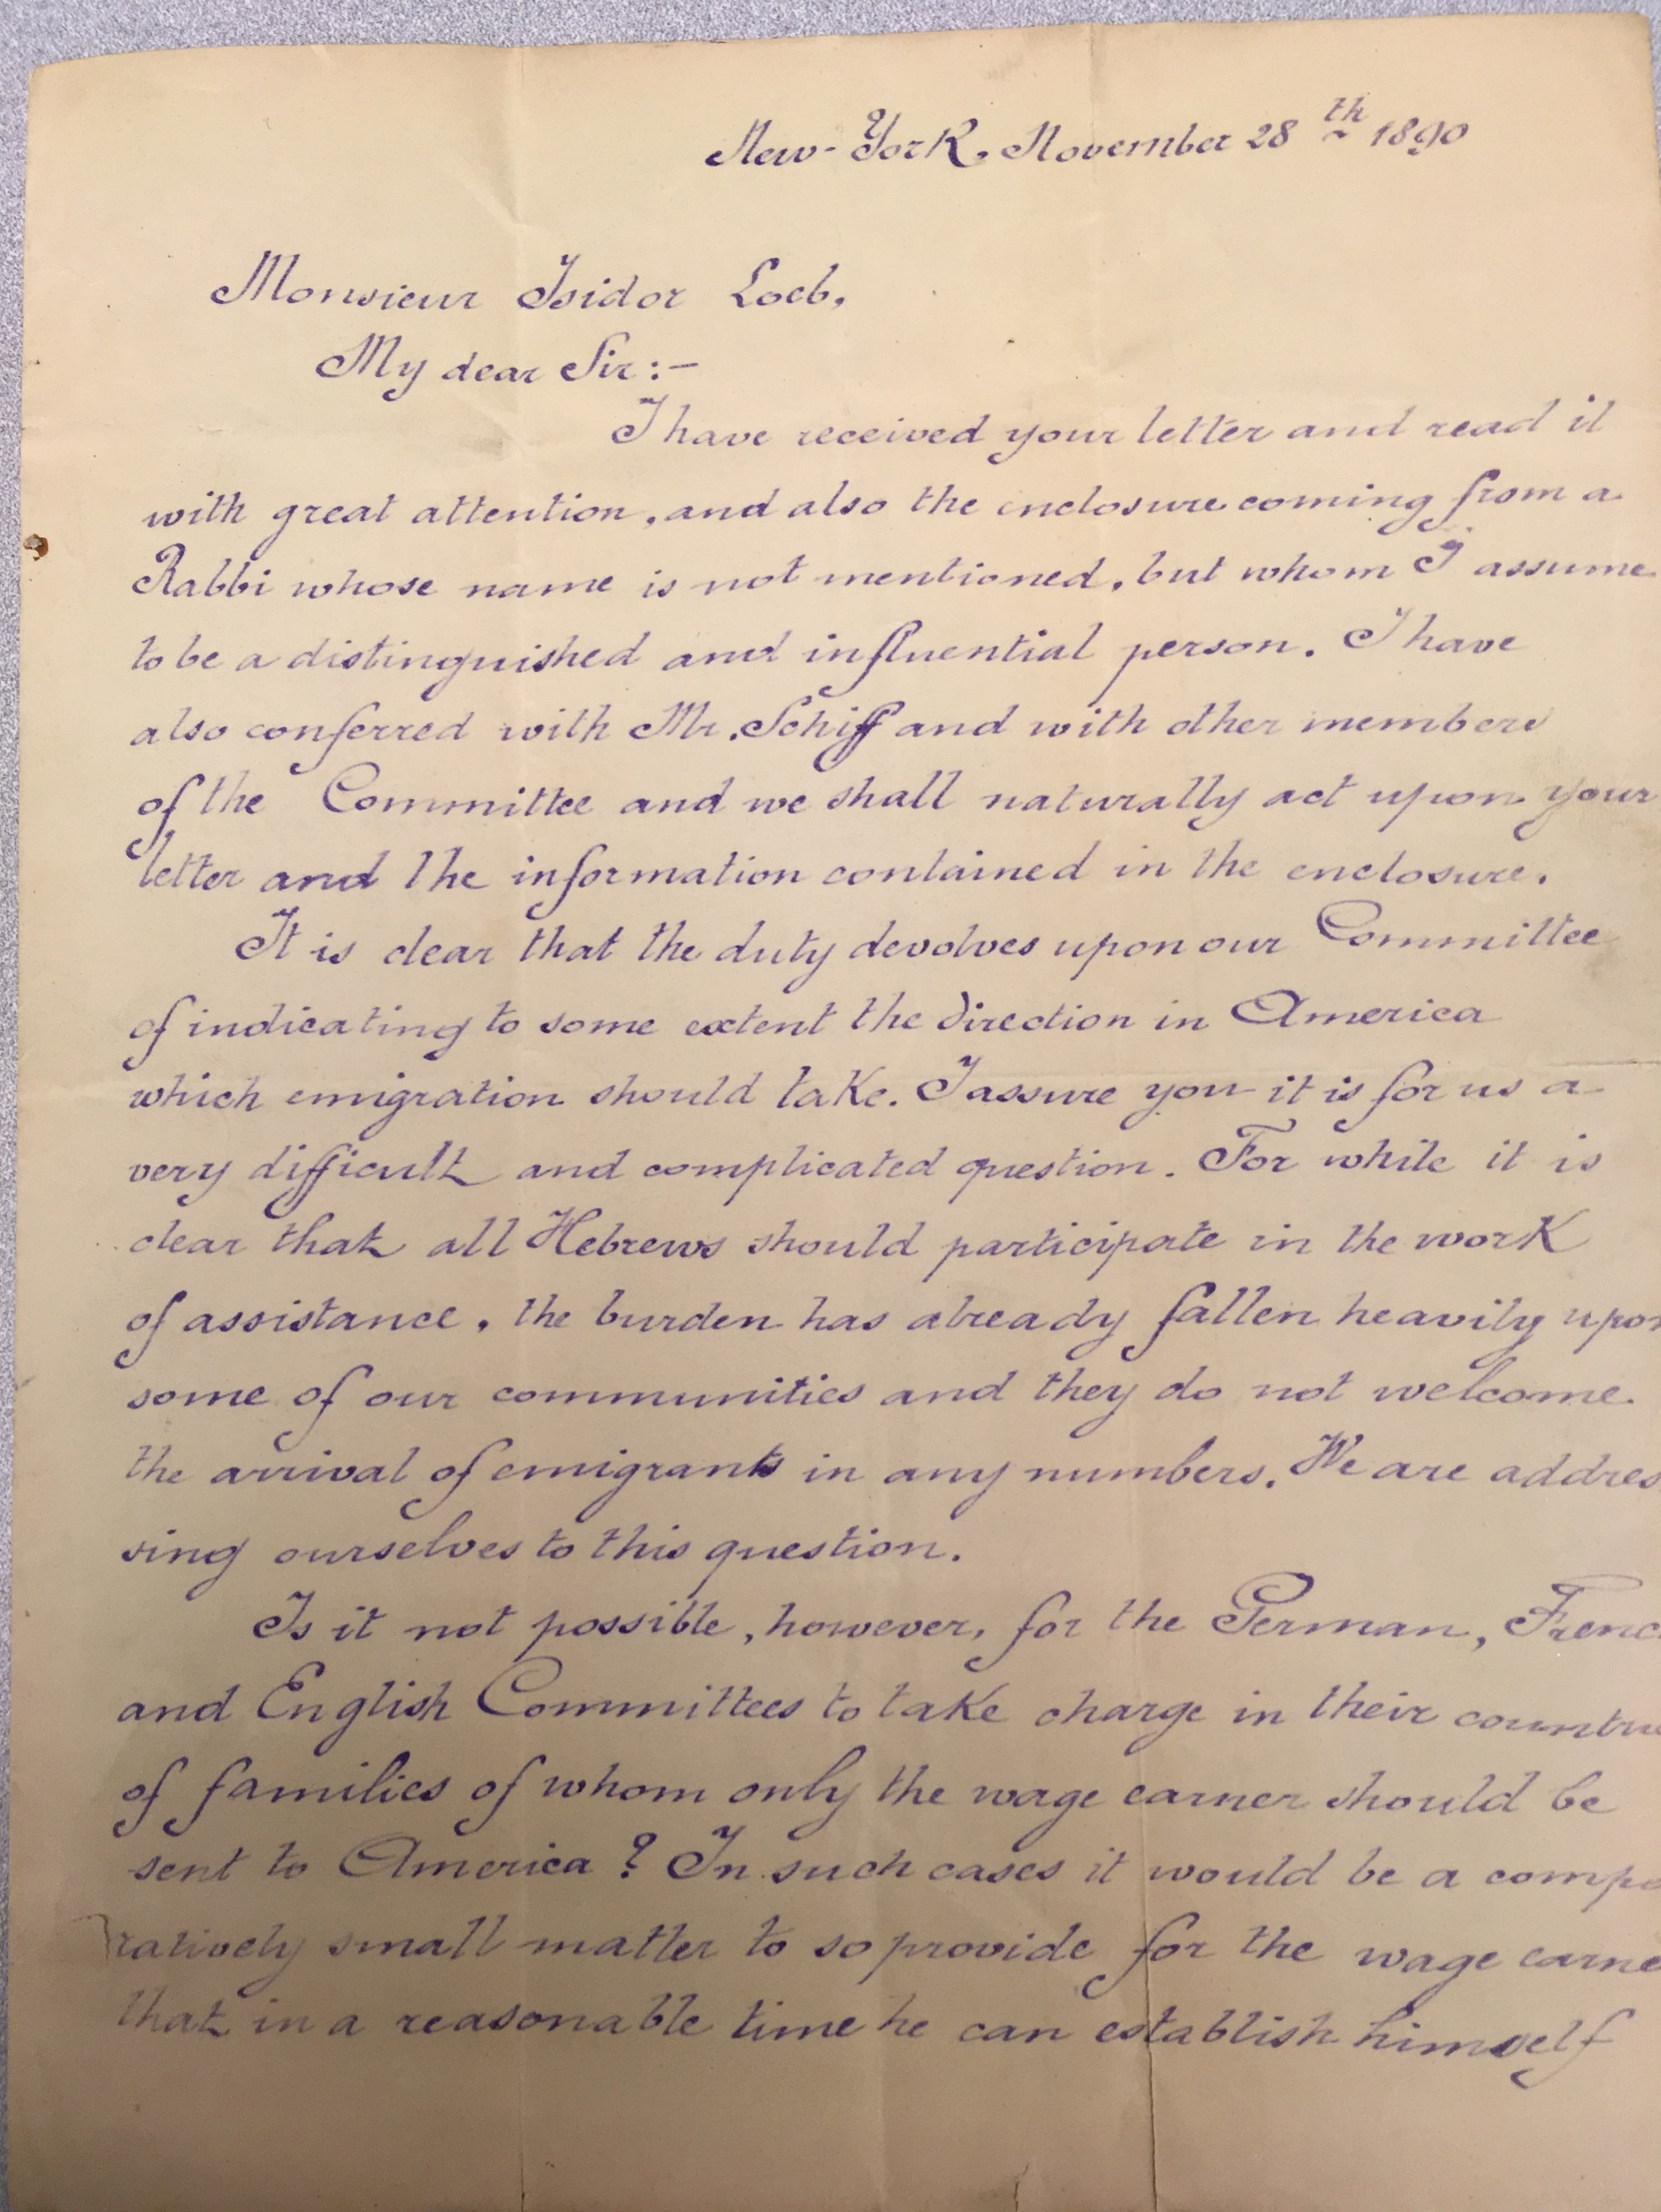 New-York, November 28th 1890
Monsieur Isidor Loeb,
My dear Sir:-
I have received your letter and read it
with great attention, and also the enclosure coming from a
Rabbi whose name is not mentioned, but whom I assume
to be a distinguished and influential person. I have
also conferred with Mr. Schiff and with other members
of the Committee and we shall naturally act upon your
letter and the information contained in the enclosure.
It is clear that the duty devolves upon our Committee
of indicating to some extent the direction in America
which emigration should take. I assure you it is for us a
very difficult and complicated question. For while it is
clear that all Hebrews should participate in the work
of assistance, the burden has already fallen heavily upon
some of our communities and they do not welcome
the arrival of emigrants in any numbers. We are addres
sing ourselves to this question.
Is it not possible, however, for the German, Frenc
and English Committees to take charge in their countri
of families of whom only the wage earner should be
sent to America? In such cases it would be a compa
ratively small matter to so provide for the wage earne
that in a reasonable time he can establish himself